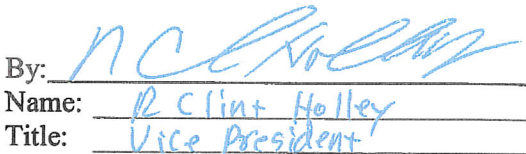 By: R C Holley
Name: R Clint Holley
Title: Vice President